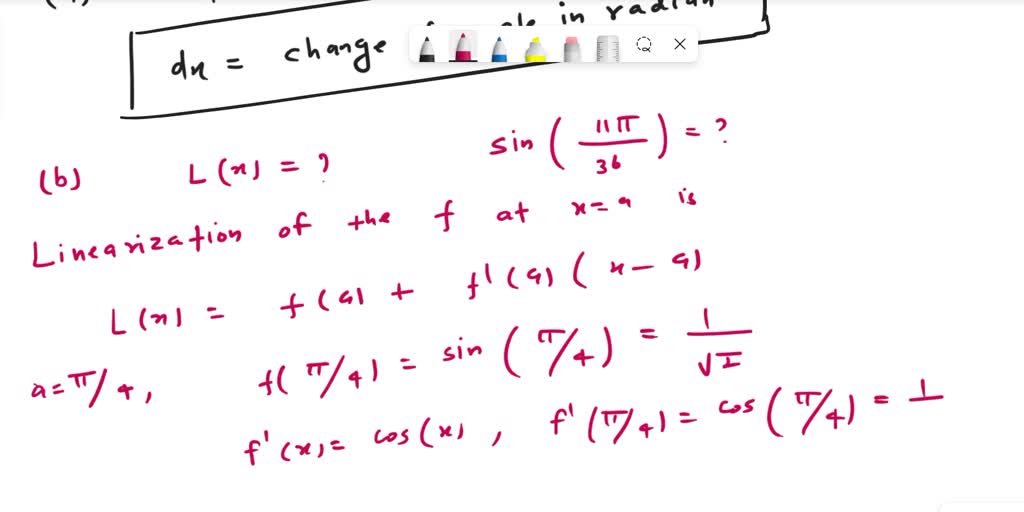 dx = change in radian
(b) L(x) = ? sin(11π/36) = ?
Linearization of the f at x=a is
L(x) = f(a) + f'(a)(x-a)
a=π/4, f(π/4) = sin(π/4) = 1/√2
f'(x)= cos(x), f'(π/4)= cos(π/4) = 1